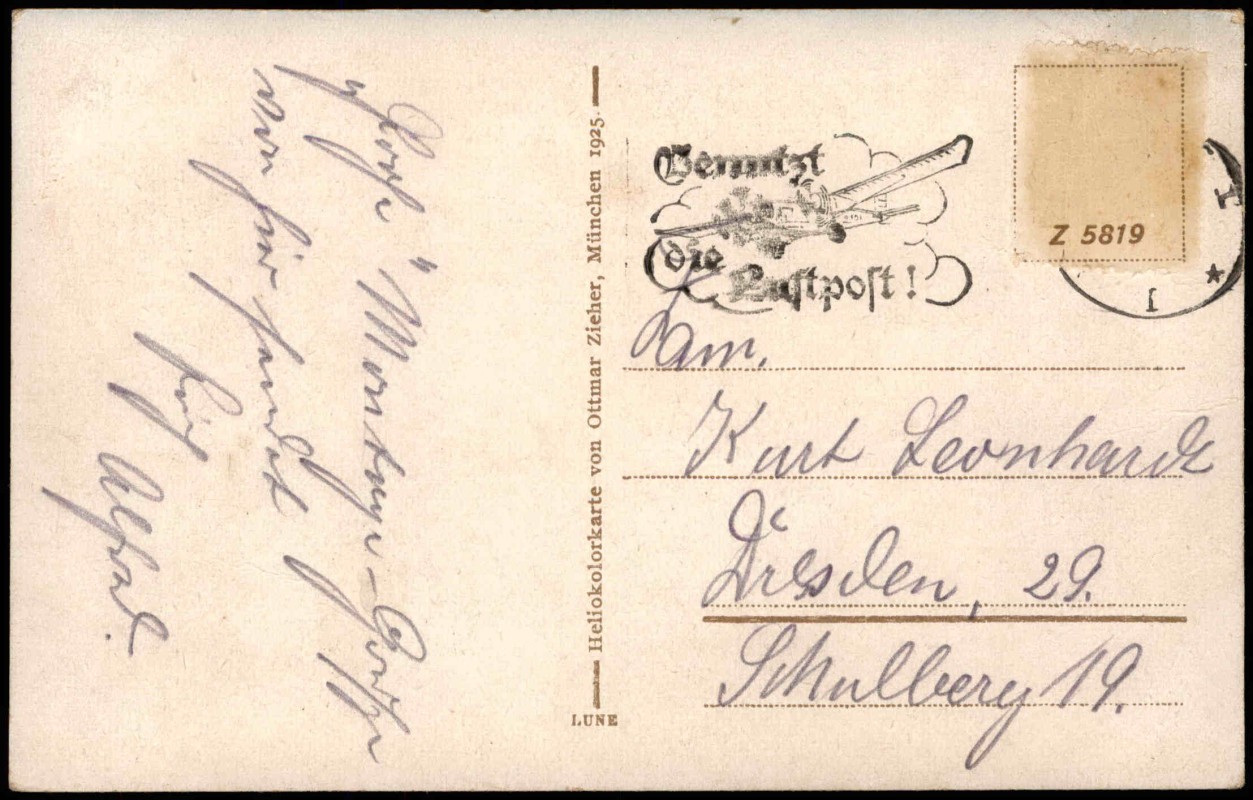 von hier sendet
Alfred.
Heliokolorkarte von Ottmar Zieher, München 1925.
LUNE
Benutzt
die
Luftpost!
Z 5819
I
Fam.
Kurt Leonhardt
Dresden, 29.
Schulberg 19.